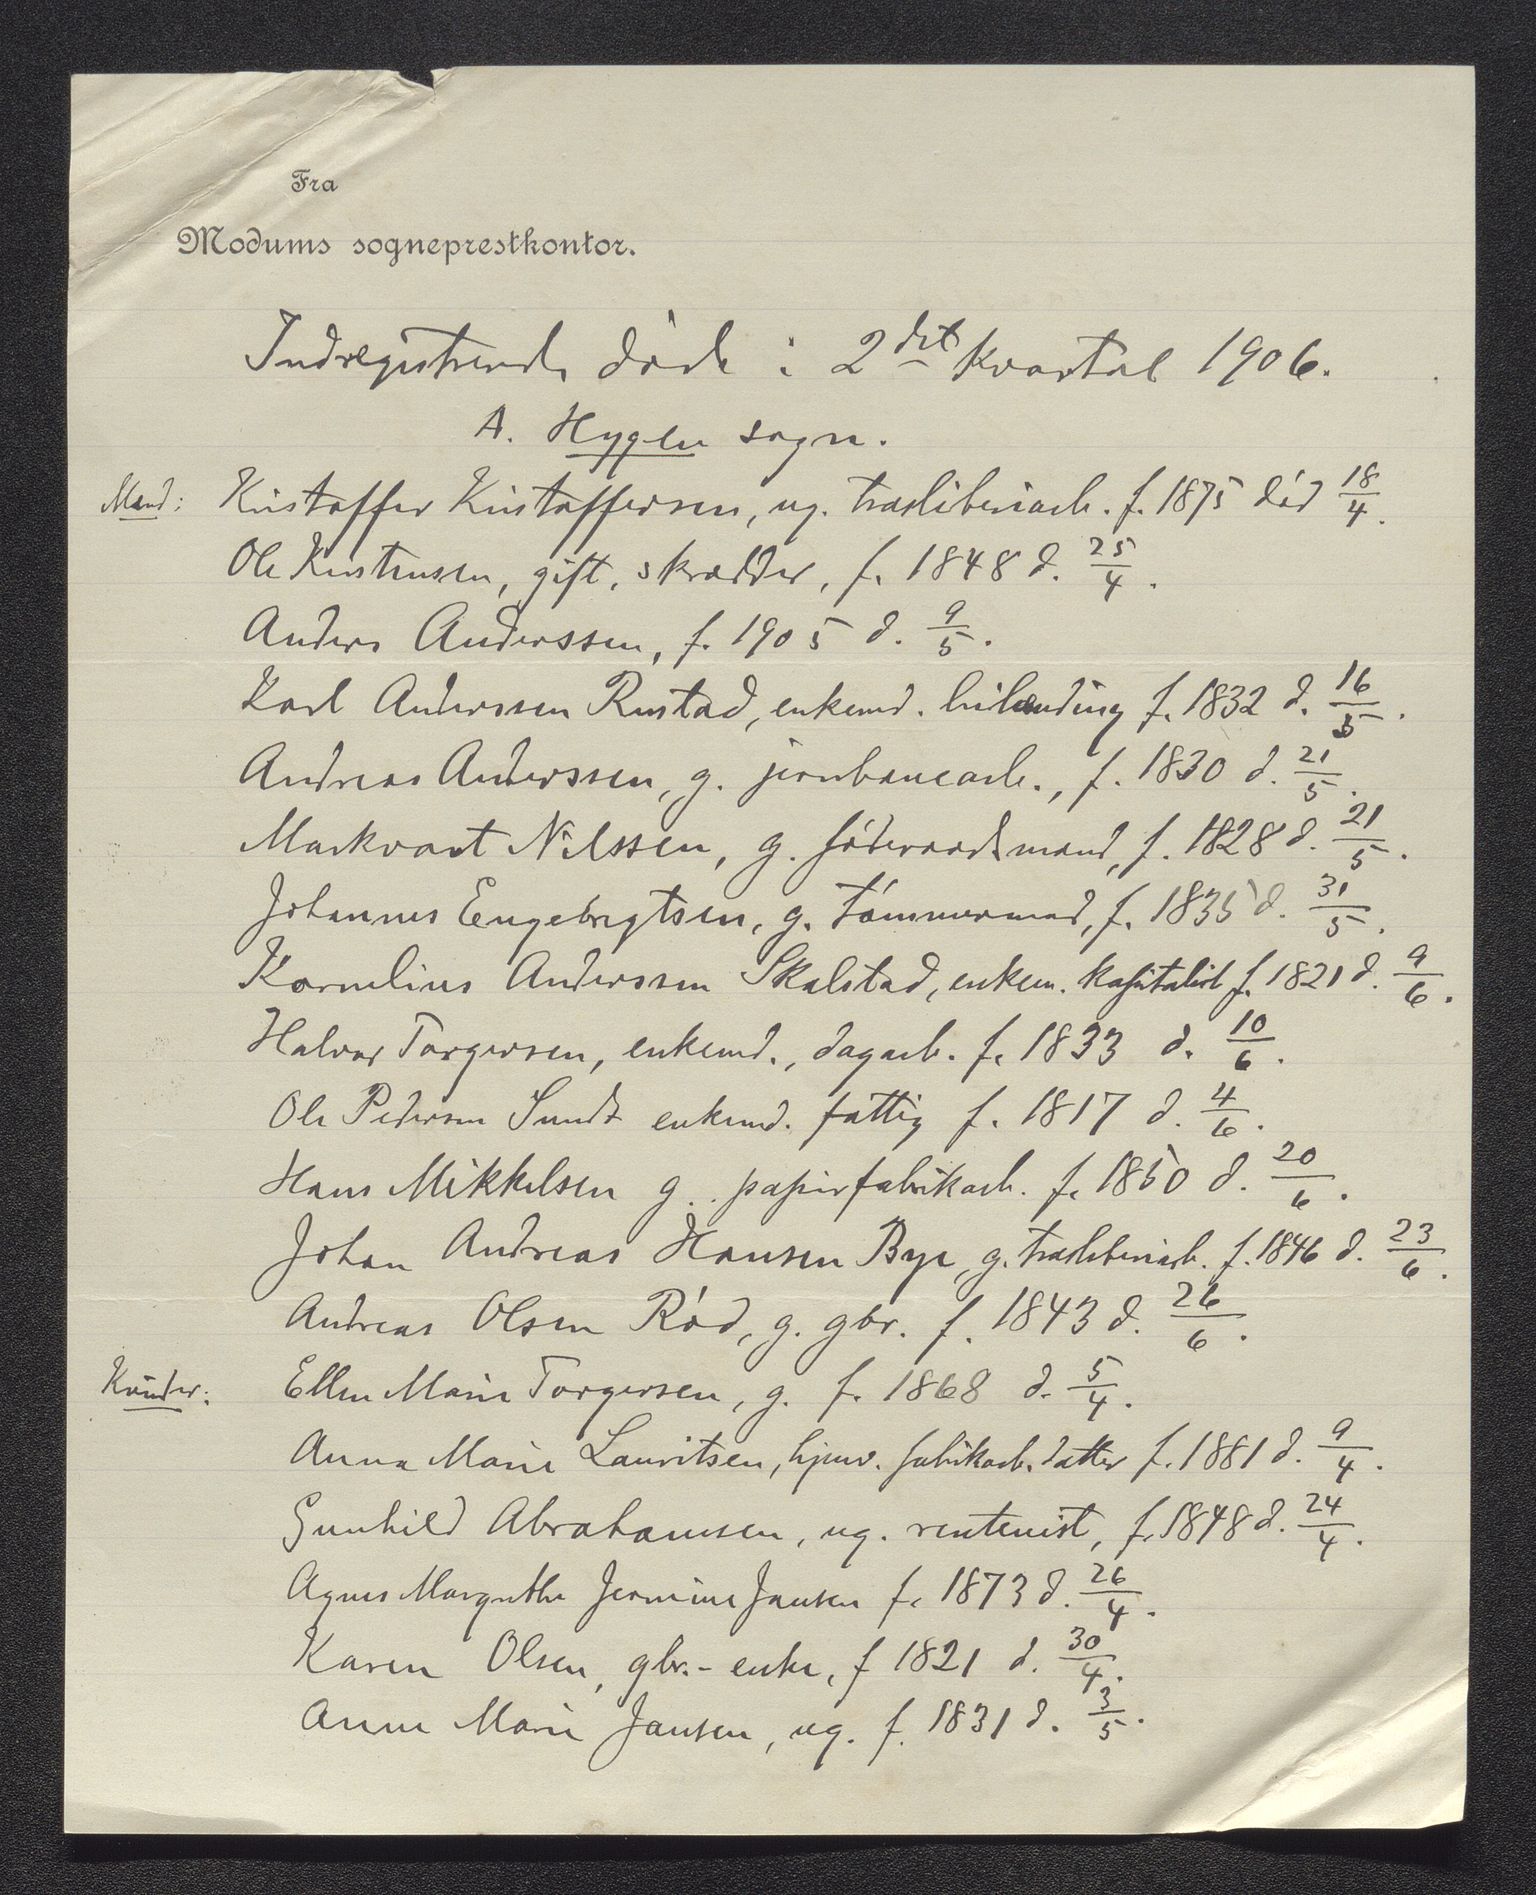 Fra
Modums sogneprestkontor.
Indregistrerede døde i 2det kvartal 1906.
A. Hyggen sogn.
Mænd: Kristoffer Kristoffersen, ug. træsliberiarb. f. 1875 død 18/4.
Ole Kristensen, gift, skrædder, f. 1848 d. 25/4.
Anders Anderssen, f. 1905 d. 9/5.
Karl Anderssen Rustad, enkemd. f. 1832 d. 16/5.
Andreas Anderssen, g. jernbanearb., f. 1830 d. 21/5.
Markvart Nilssen, g. føderaadsmand, f. 1828 d. 21/5.
Johannes Engebrigtsen, g. tømmermand, f. 1835 d. 31/5.
Kornelius Anderssen Skalstad, enkem. kapitalist f. 1821 d. 9/6.
Halvor Torgersen, enkemd., dagarb. f. 1833 d. 10/6.
Ole Pedersen Sundt enkemd. fattig f. 1817 d. 4/6.
Hans Mikkelsen g. papirfabrikarb. f. 1850 d. 20/6.
Johan Andreas Hansen Bye, g. træsliberiarb. f. 1846 d. 23/6.
Andreas Olsen Rød, g. gbr. f. 1843 d. 26/6.
Kvinder: Ellen Marie Torgersen, g. f. 1868 d. 5/4.
Anna Marie Lauritsen, hjmv. fabrikarb. datter f. 1881 d. 9/4.
Gunhild Abrahamsen, ug. rentenist, f. 1848 d. 24/4.
Agnes Margrethe Jermine Jansen f. 1873 d. 26/4.
Karen Olsen, gbr.-enke, f 1821 d. 30/4.
Anne Marie Jansen, ug. f. 1831 d. 3/5.